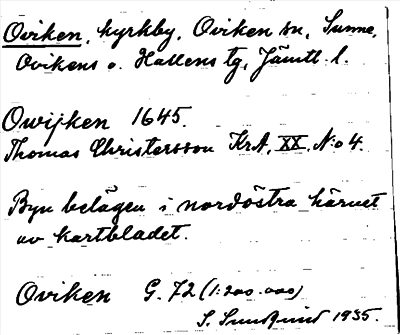 Oviken, kyrkby, Oviken sn, Sunne,
Ovikens o. Hallens tg, Jämtl. l.
Owijken 1645.
Thomas Christersson KrA, XX, N:o 4.
Byn belägen i nordöstra hörnet
av kartbladet.
Oviken G. 72 (1:200.000)
S. Sundquist 1935.